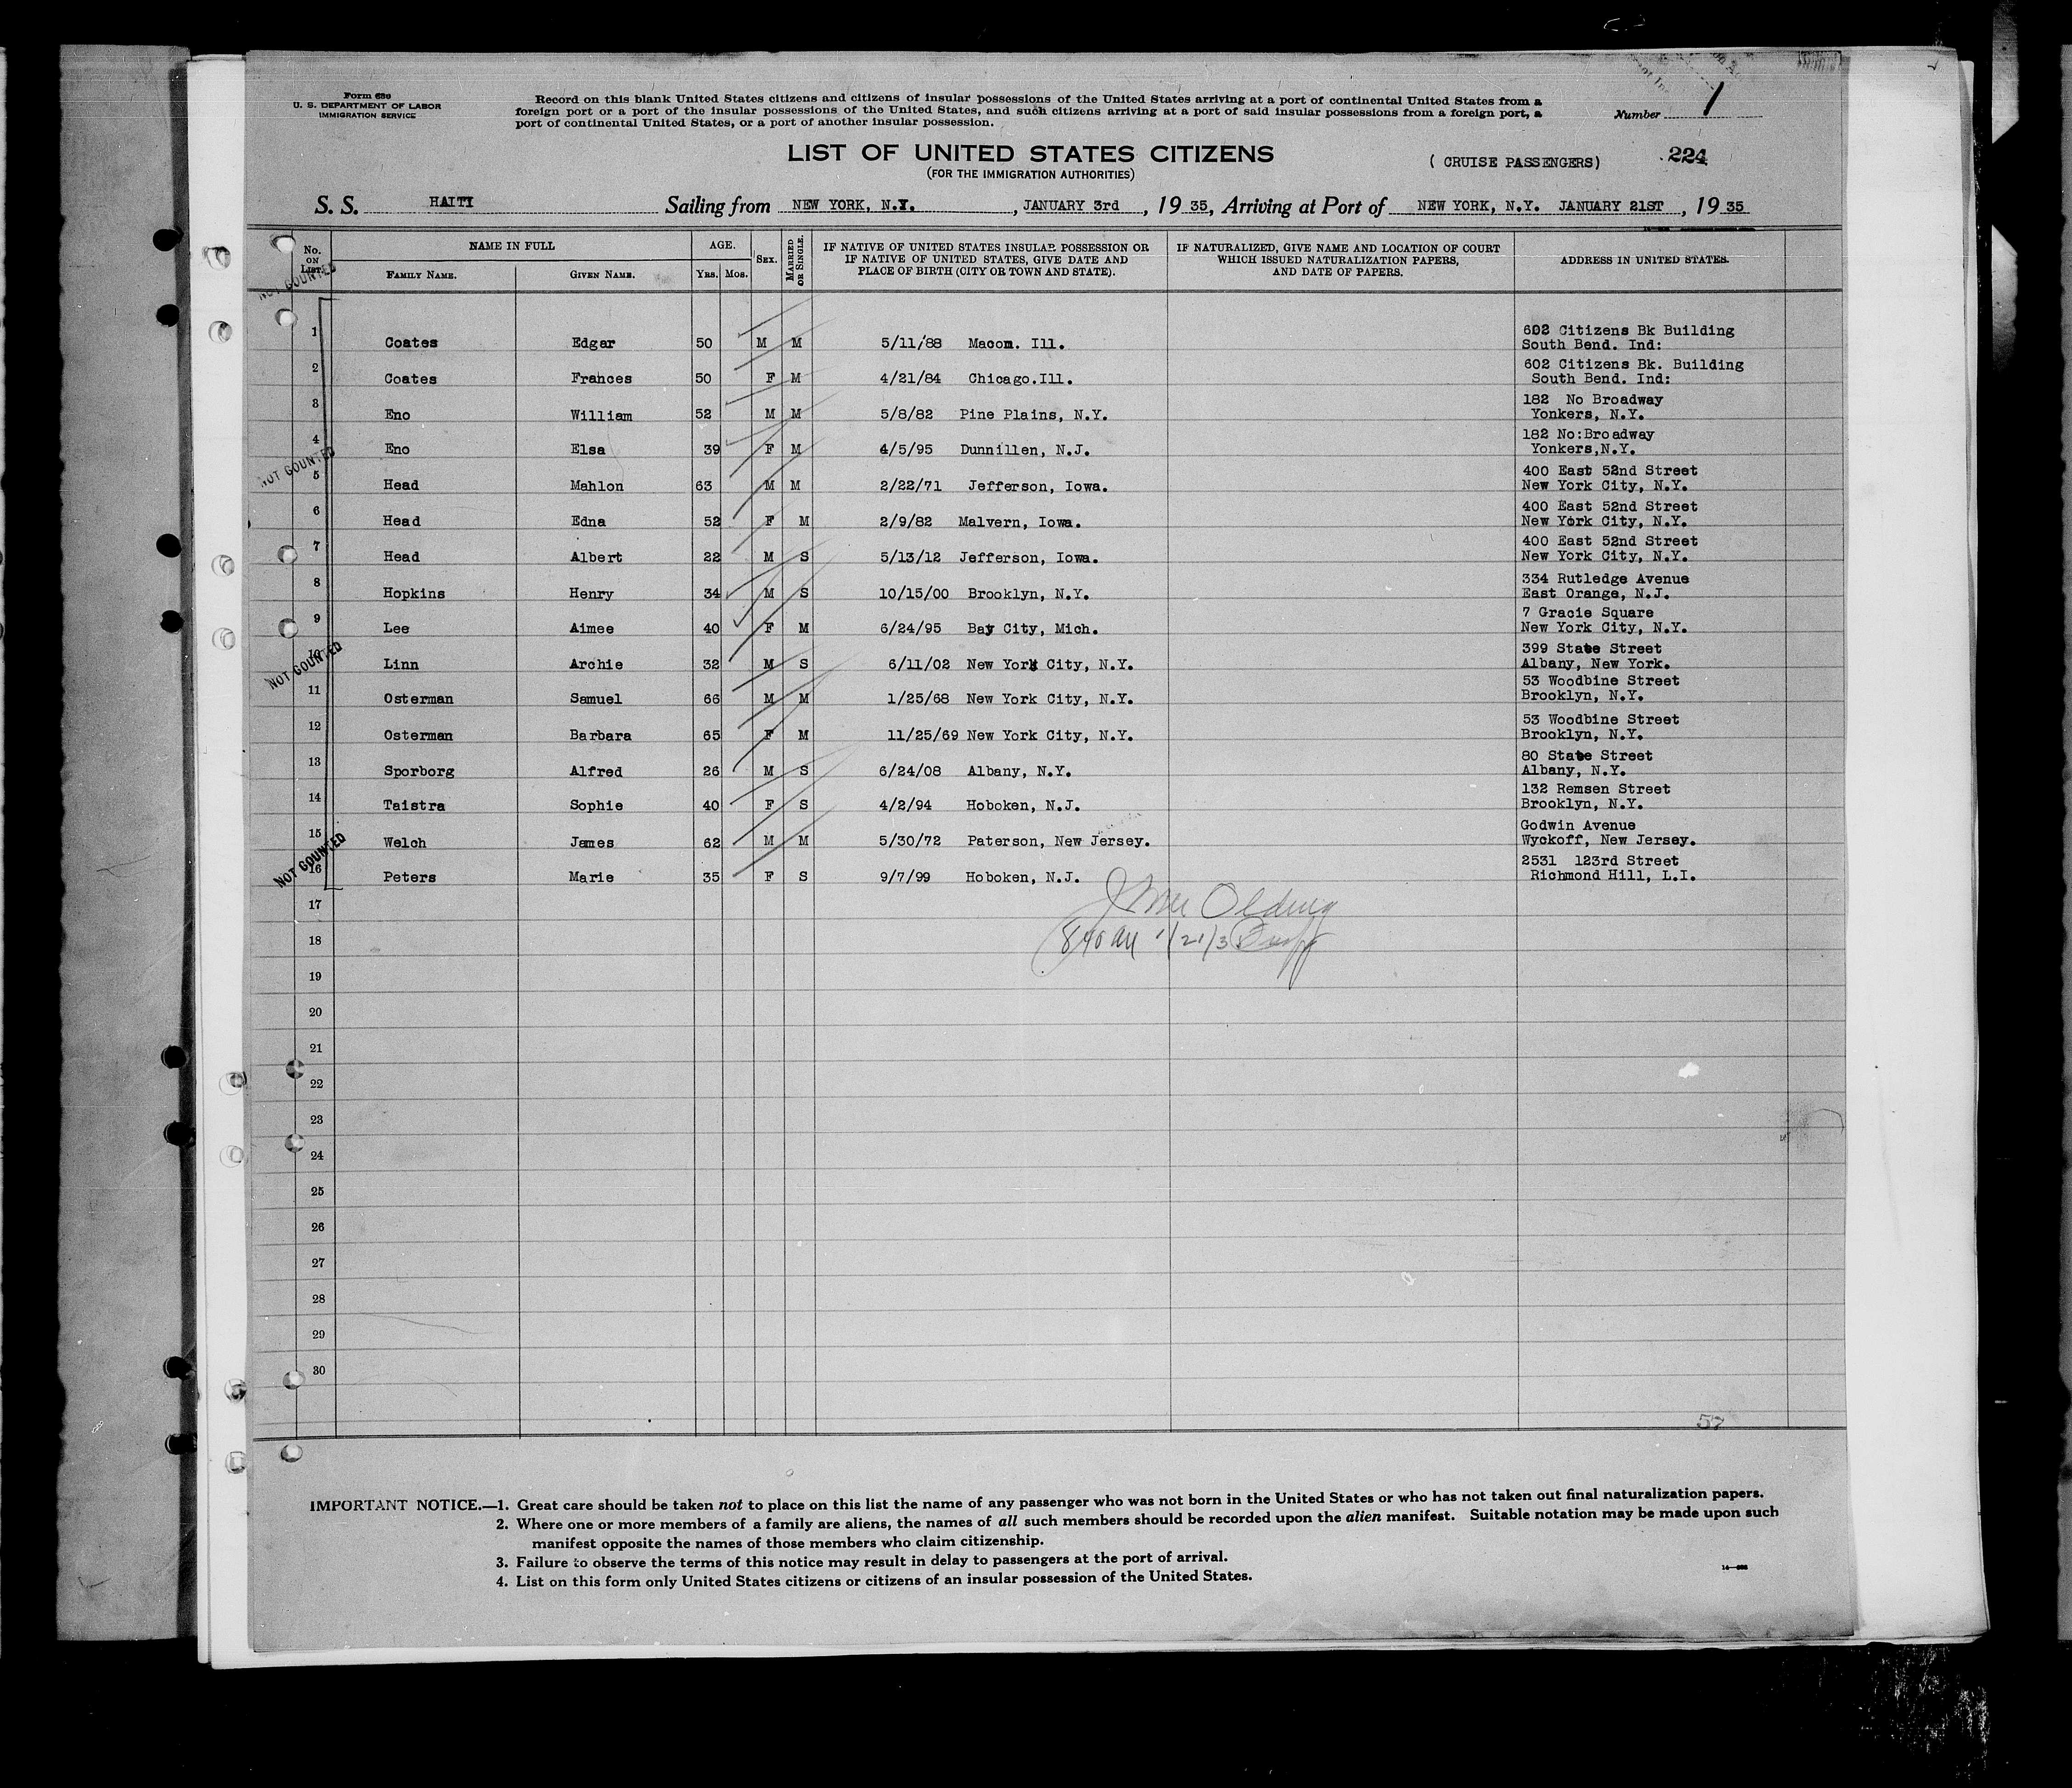 Form 630
U. S. DEPARTMENT OF LABOR
IMMIGRATION SERVICE
Record on this blank United States citizens and citizens of insular possessions of the United States arriving at a port of continental United States from a
foreign port or a port of the insular possessions of the United States, and such citizens arriving at a port of said insular possessions from a foreign port, a
port of continental United States, or a port of another insular possession.
Number 1
LIST OF UNITED STATES CITIZENS
(FOR THE IMMIGRATION AUTHORITIES)
( CRUISE PASSENGERS) 224
S. S. HAITI Sailing from NEW YORK, N.Y. , JANUARY 3rd , 19 35, Arriving at Port of NEW YORK, N.Y. JANUARY 21ST , 19 35
No. ON LIST. NAME IN FULL FAMILY NAME. GIVEN NAME. AGE. YRS. MOS. SEX. MARRIED OR SINGLE. IF NATIVE OF UNITED STATES INSULAR POSSESSION OR IF NATIVE OF UNITED STATES, GIVE DATE AND PLACE OF BIRTH (CITY OR TOWN AND STATE). IF NATURALIZED, GIVE NAME AND LOCATION OF COURT WHICH ISSUED NATURALIZATION PAPERS, AND DATE OF PAPERS. ADDRESS IN UNITED STATES.
NOT COUNTED
1 Coates Edgar 50 M M 5/11/88 Macon. Ill. 602 Citizens Bk Building South Bend. Ind:
2 Coates Frances 50 F M 4/21/84 Chicago.Ill. 602 Citizens Bk. Building South Bend. Ind:
3 Eno William 52 M M 5/8/82 Pine Plains, N.Y. 182 No Broadway Yonkers, N.Y.
4 Eno Elsa 39 F M 4/5/95 Dunnillen, N.J. 182 No:Broadway Yonkers,N.Y.
NOT COUNTED
5 Head Mahlon 63 M M 2/22/71 Jefferson, Iowa. 400 East 52nd Street New York City, N.Y.
6 Head Edna 52 F M 2/9/82 Malvern, Iowa. 400 East 52nd Street New York City, N.Y.
7 Head Albert 22 M S 5/13/12 Jefferson, Iowa. 400 East 52nd Street New York City, N.Y.
8 Hopkins Henry 34 M S 10/15/00 Brooklyn, N.Y. 334 Rutledge Avenue East Orange, N.J.
9 Lee Aimee 40 F M 6/24/95 Bay City, Mich. 7 Gracie Square New York City, N.Y.
NOT COUNTED
10 Linn Archie 32 M S 6/11/02 New York City, N.Y. 399 State Street Albany, New York.
11 Osterman Samuel 66 M M 1/25/68 New York City, N.Y. 53 Woodbine Street Brooklyn, N.Y.
12 Osterman Barbara 65 F M 11/25/69 New York City, N.Y. 53 Woodbine Street Brooklyn, N.Y.
13 Sporborg Alfred 26 M S 6/24/08 Albany, N.Y. 80 State Street Albany, N.Y.
14 Taistra Sophie 40 F S 4/2/94 Hoboken, N.J. 132 Remsen Street Brooklyn, N.Y.
15 Welch James 62 M M 5/30/72 Paterson, New Jersey. Godwin Avenue Wyckoff, New Jersey.
NOT COUNTED
16 Peters Marie 35 F S 9/7/99 Hoboken, N.J. 2531 123rd Street Richmond Hill, L.I.
17
18
19
20
21
22
23
24
25
26
27
28
29
30
57
IMPORTANT NOTICE.—1. Great care should be taken not to place on this list the name of any passenger who was not born in the United States or who has not taken out final naturalization papers.
2. Where one or more members of a family are aliens, the names of all such members should be recorded upon the alien manifest. Suitable notation may be made upon such
manifest opposite the names of those members who claim citizenship.
3. Failure to observe the terms of this notice may result in delay to passengers at the port of arrival.
4. List on this form only United States citizens or citizens of an insular possession of the United States.